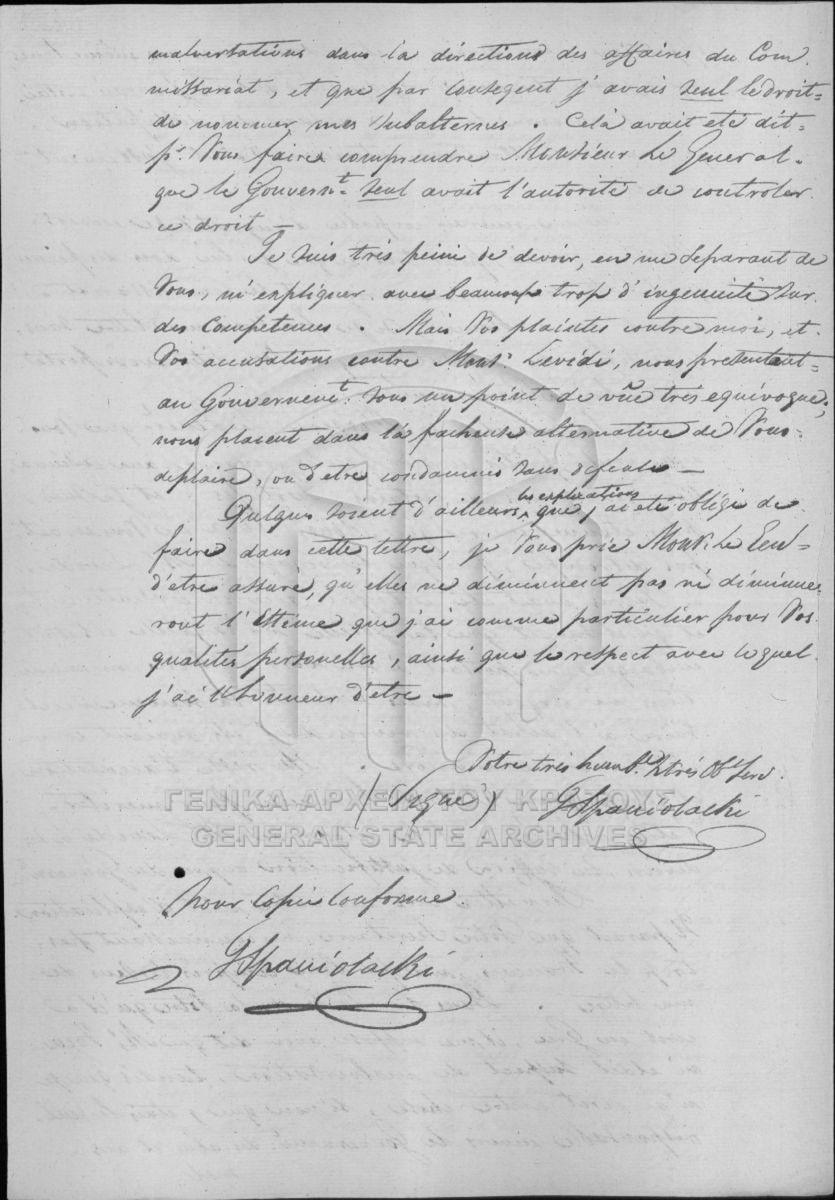 malversations dans la directions des affaires du Com
missariat, et que par consegent j'avais seul le droit
de nommer mes subalternes. Celà avait eté dit
pr. Vous faire comprendre Monsieur Le General
que le Gouvernt. seul avait l'autorité de controler
ce droit —
Je suis très peiné de devoir, en me separant de
Vous, m'expliquer avec beaucoup trop d'ingenuité sur
des competences. Mais Vos plaintes contre moi, et
Vos accusations contre Monsr. Levidi, nous presentant
au Gouvernemt. sous un point de vüe très equivoque,
nous placent dans la facheuse alternative de Vous
deplaire, ou d'etre condamnés sans defense —
Quelques soient d'ailleurs les explications que j'ai eté obligé de
faire dans cette lettre, je Vous prie Monsr. Le Genl
d'etre assuré, qu'elles ne diminuent pas ni diminue
ront l'Estime que j'ai comme particulier pour Vos
qualités personelles, ainsi que le respect avec lequel
j'ai l'honneur d'etre —
Votre très humb. & très Ob. Serv.
(Signé) GSpaniolacki
ΓΕΝΙΚΑ ΑΡΧΕΙΑ ΤΟΥ ΚΡΑΤΟΥΣ
GENERAL STATE ARCHIVES
Pour Copie Conforme
GSpaniolacki